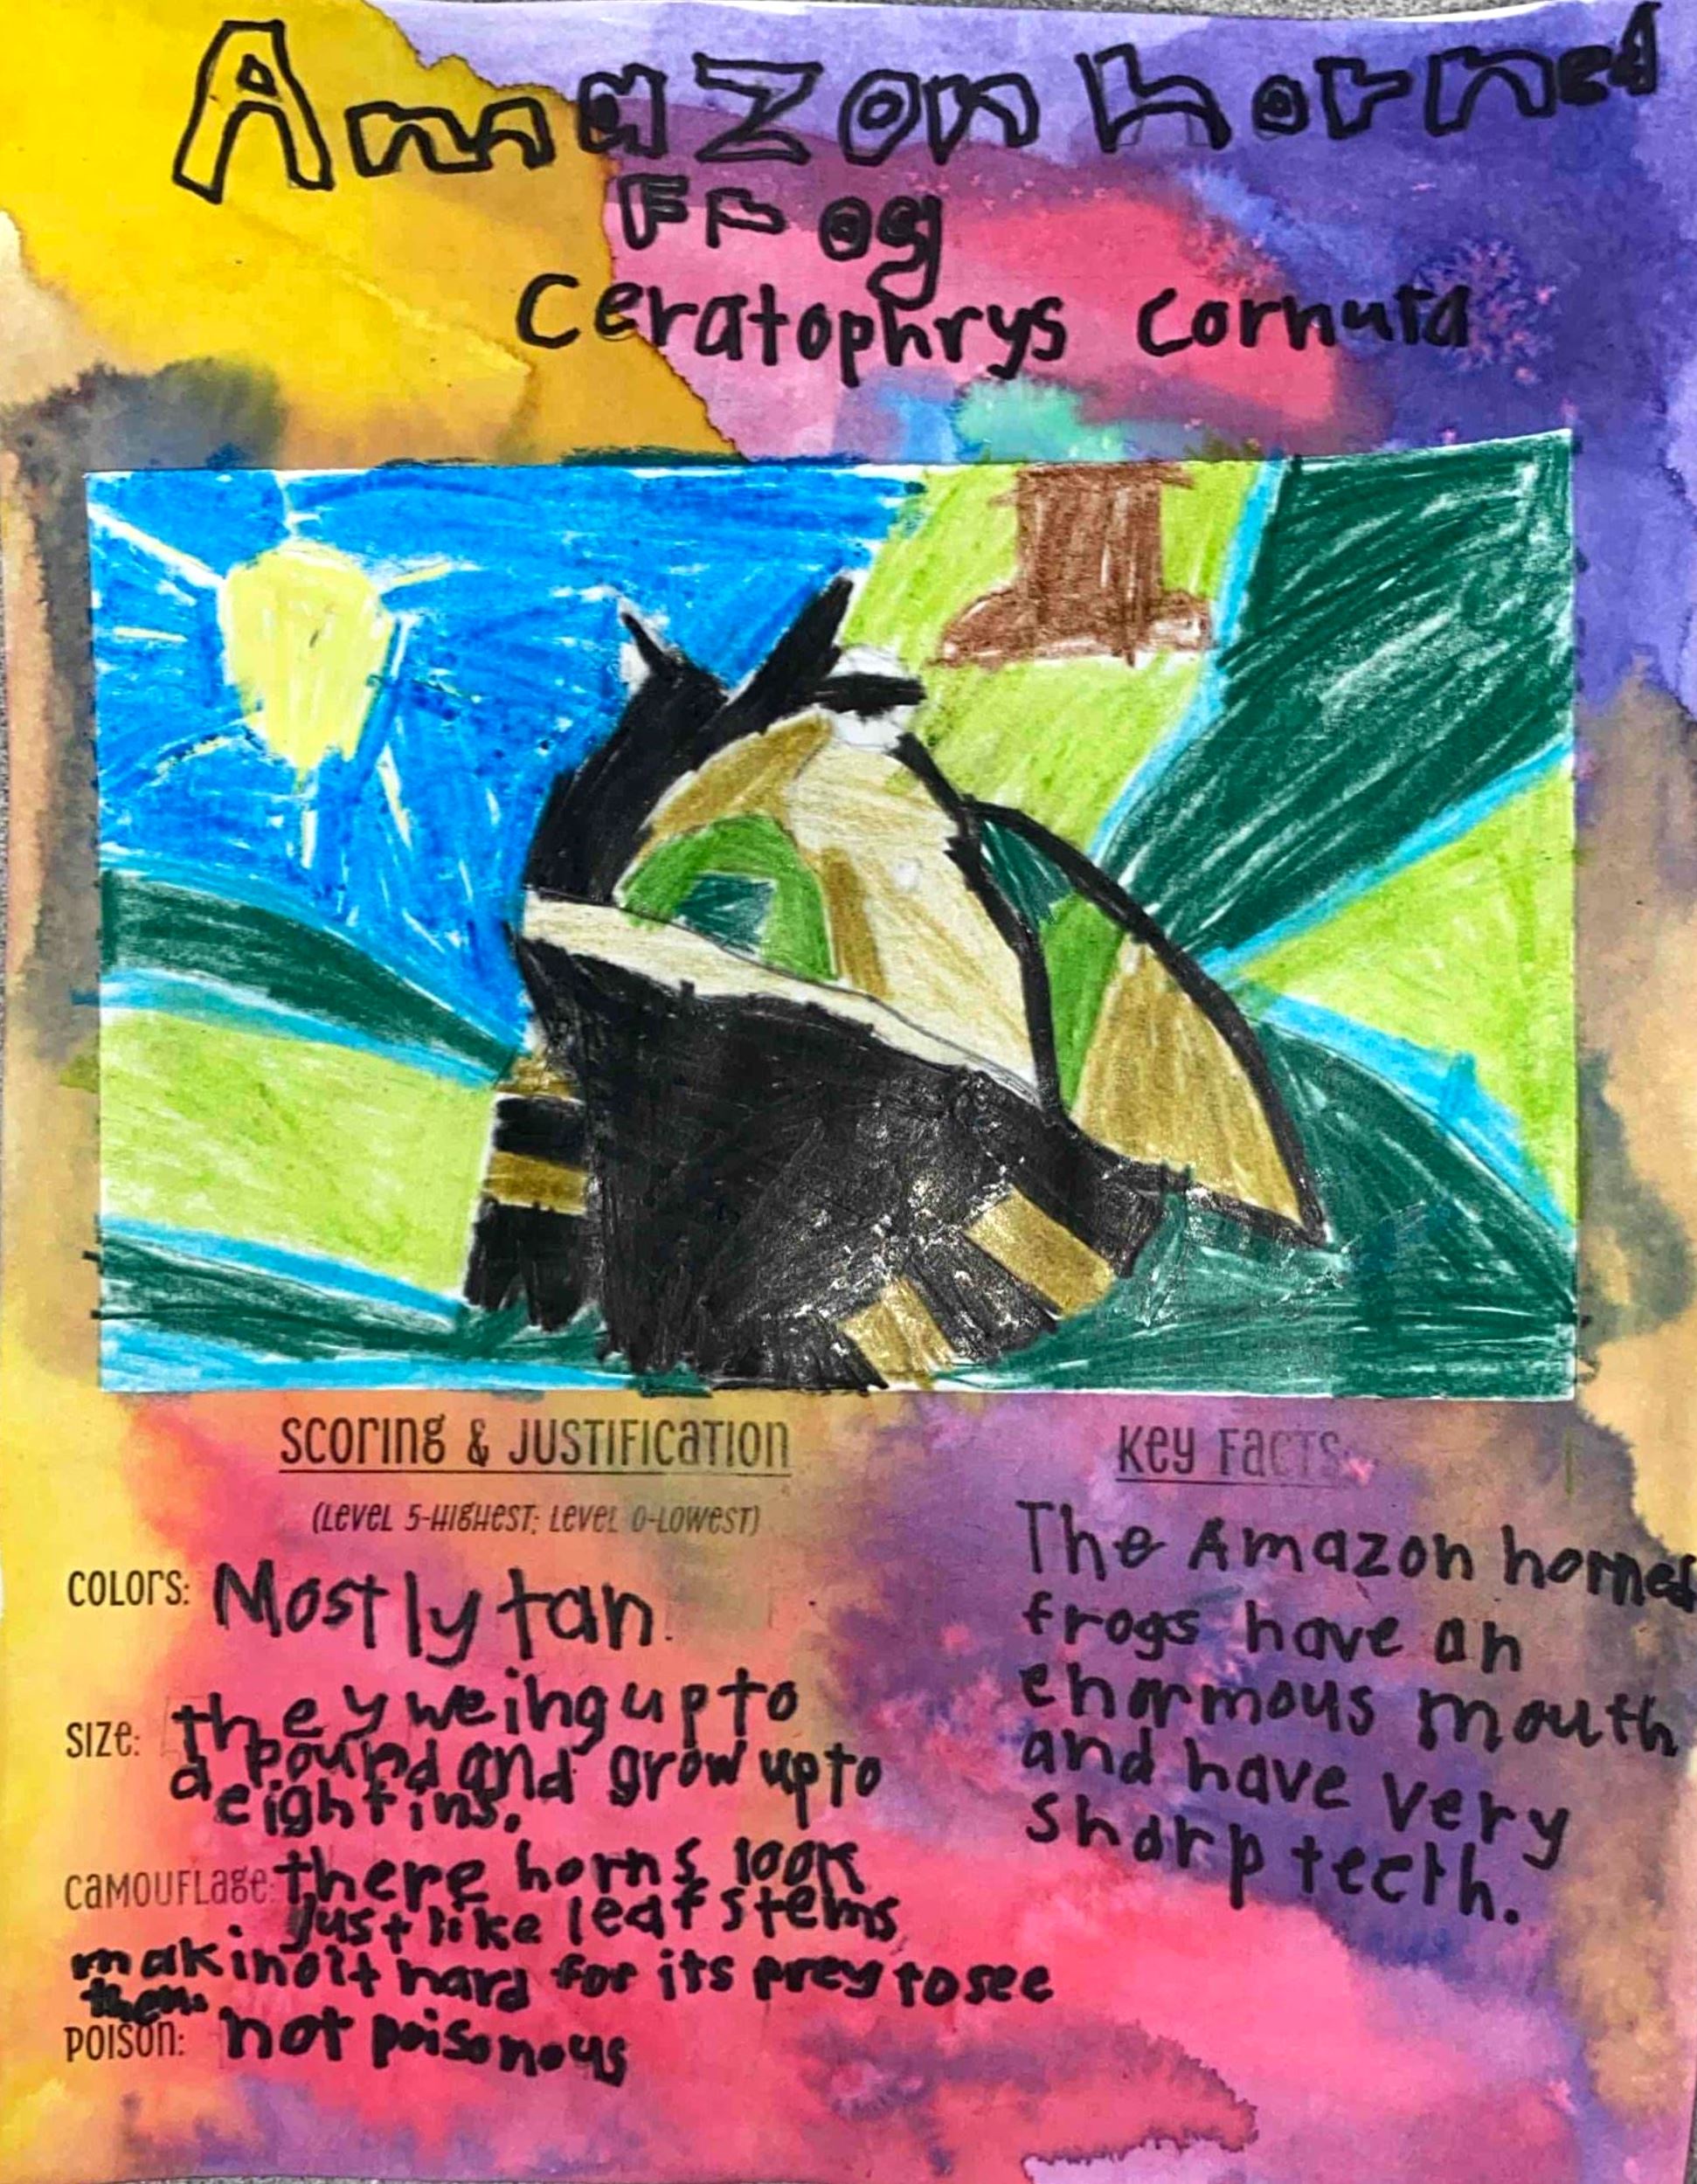 Amazon horned
Frog
Ceratophrys cornuta
SCORING & JUSTIFICATION
(LEVEL 5-HIGHEST; LEVEL 0-LOWEST)
COLORS: Mostly tan.
SIZE: they weihg up to
a pound and grow up to
eight ins.
CAMOUFLAGE: there horns look
just like leaf stems
making it hard for its prey to see
them.
POISON: not poisonous
KEY FACTS:
The Amazon horned
frogs have an
enormous mouth
and have very
sharp teeth.